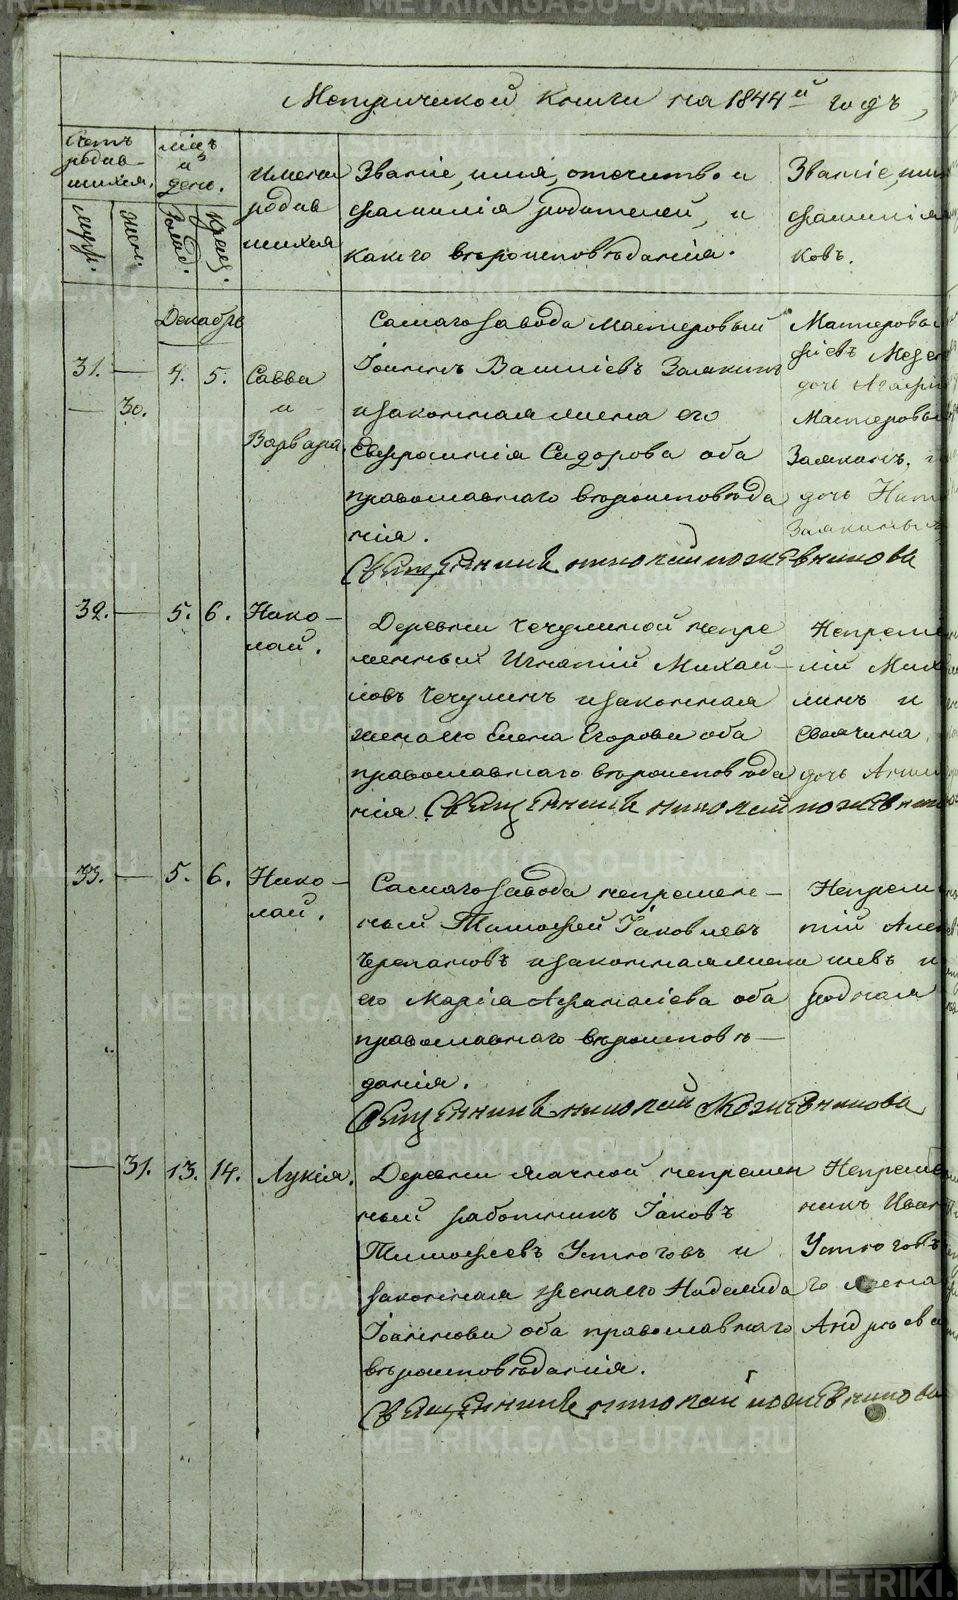 Метрической книги на 1844й годъ,
Счетъ родив-шихся.
мцъ и день.
Имена родив шихся
Званіе, имя, отечество и
фамилія родителей, и
какого вѣроисповѣданія.
Званіе, имя
фамилія
ковъ.
муж.
жен.
Рожд.
Крещ.
Декабрь
31. — 4. 5. Савва
— 30. и
Варвара.
Самаго завода мастеровый
Іоаннъ Василіевъ Заякинъ
и законная жена его
Евфросинія Сидорова оба
православнаго вѣроисповѣда
нія.
Священникъ Николай Кожевникова
Мастеровы
дочь
Мастеровы
Заякинъ,
дочь
Заякиныхъ
32. — 5. 6. Нико-
лай.
Деревни Чечулиной непре
менный Игнатій Михай-
ловъ Чечулинъ и законная
жена его Елена Егорова оба
православнаго вѣроисповѣда
нія. Священникъ Николай Кожевник
Непреме
лій Миха
линъ и
дочь
33. — 5. 6. Нико-
лай.
Самаго завода непремен-
ный Тимофей Іаковлевъ
Черепановъ и законная жена
его Марія Афанасіева оба
православнаго вѣроисповѣ-
данія.
Священникъ Николай Кожевникова
Непрем
тій Алек
шевъ и
родная
— 31. 13. 14. Лукія.
Деревни Ячной непремен
ный работникъ Іаковъ
Тимофеевъ Устюговъ и
законная жена его Надежда
Іоаннова оба православнаго
вѣроисповѣданія.
Священникъ Николай Кожевникова
Непреме
никъ Иван
Устюговъ
го жена
Андреева
METRIKI.GASO-URAL.RU